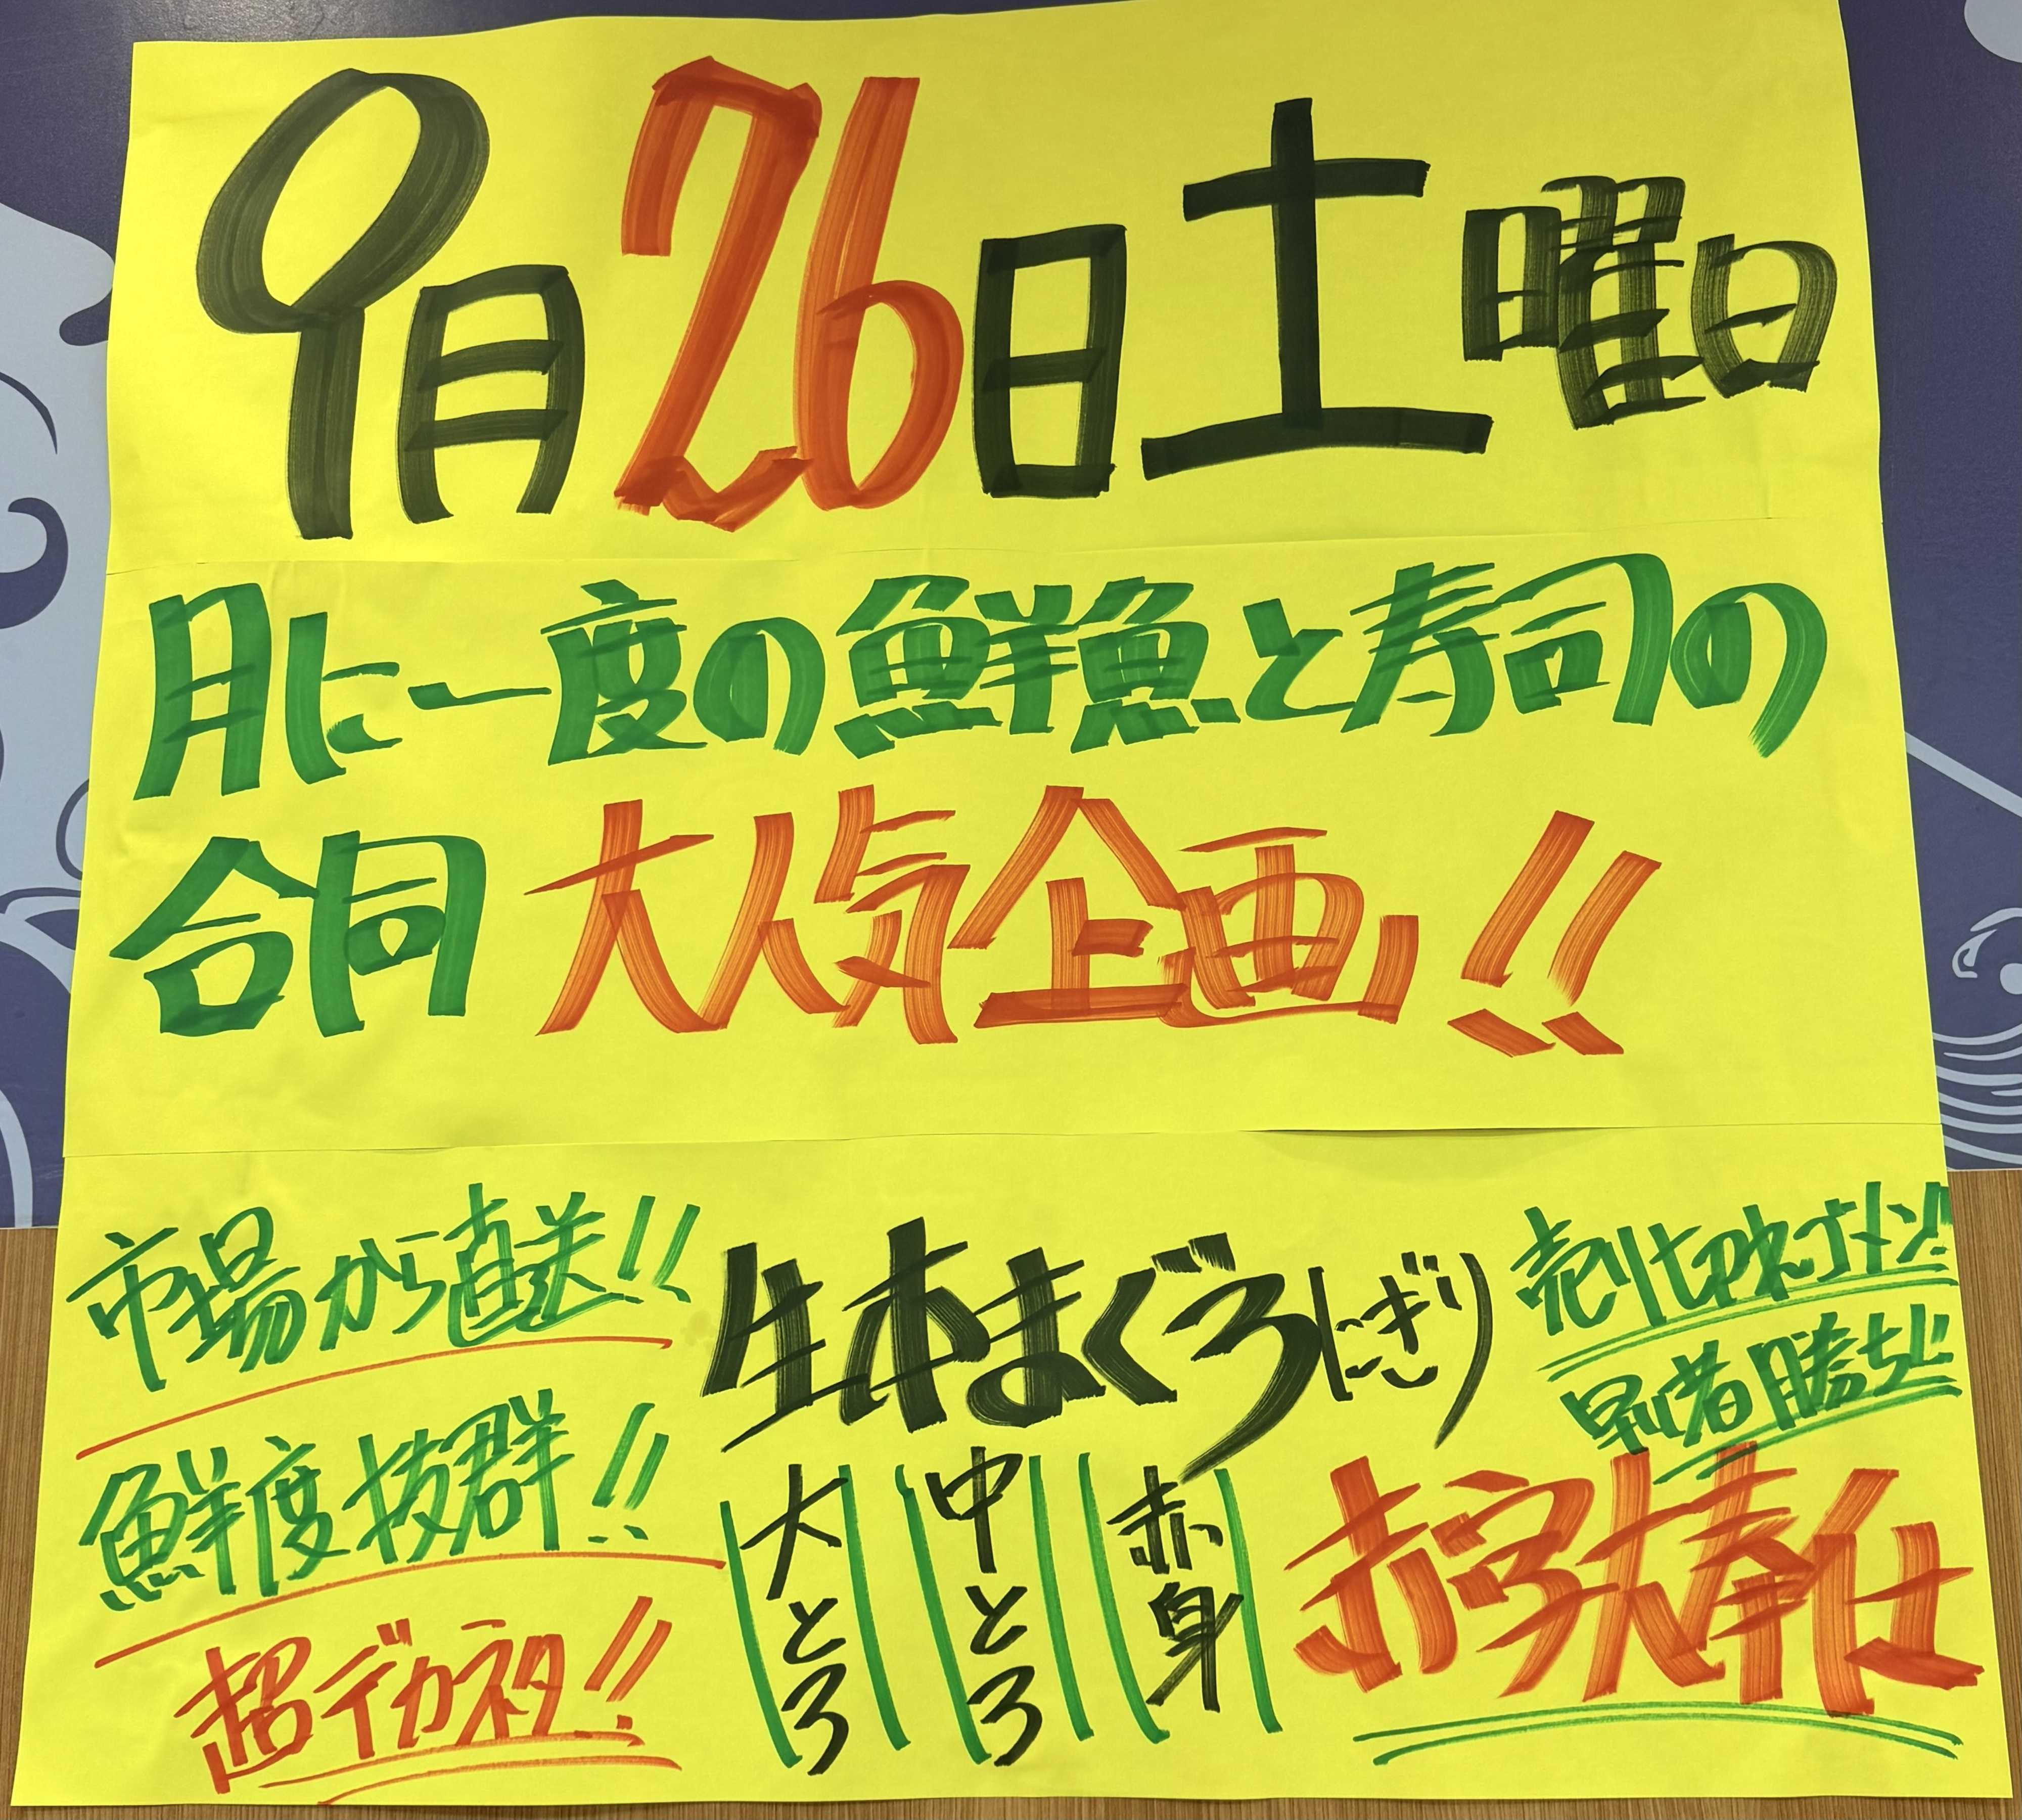 9月26日土曜日
月に一度の鮮魚と寿司の
合同 大人気企画!!
市場から直送!!
鮮度抜群!!
超デカネタ!!
生本まぐろ(にぎり)
大とろ
中とろ
赤身
売り切れゴメン!!
早い者勝ち!!
赤字大奉仕